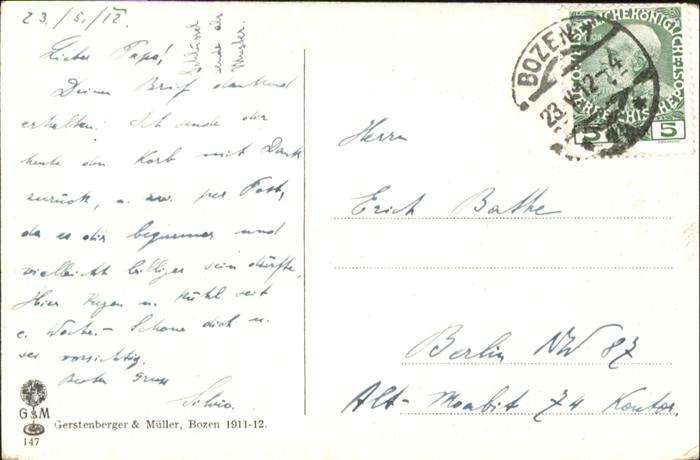 23./5./12.
Schlüssel
sende als
Muster.
Lieber Papa!
Deinen Brief dankend
erhalten! Ich sende dir
heute den Korb mit Dank
zurück, u. zw. per Post,
da es dir bequemer und
vielleicht billiger sein dürfte.
Hier Regen u. Kühl seit
e. Woche. – Schone dich u.
sei vorsichtig.
Besten Gruss
Silvio.
G&M
147
Gerstenberger & Müller, Bozen 1911-12.
BOZEN
23 V 12-4
KAISERLICHEKÖNIGLICHE
ÖSTERREICHISCHE POST
5 5
Herrn
Erich Bathe
Berlin NW 87
Alt-Moabit 74 Kontor.